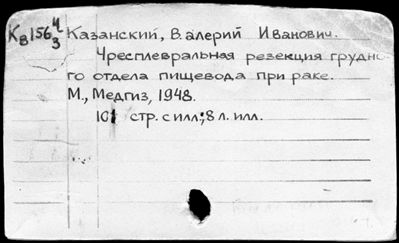 Кв156 4/3
Казанский, Валерий Иванович.
Чресплевральная резекция грудно-
го отдела пищевода при раке.
М., Медгиз, 1948.
101 стр. с илл; 8 л. илл.